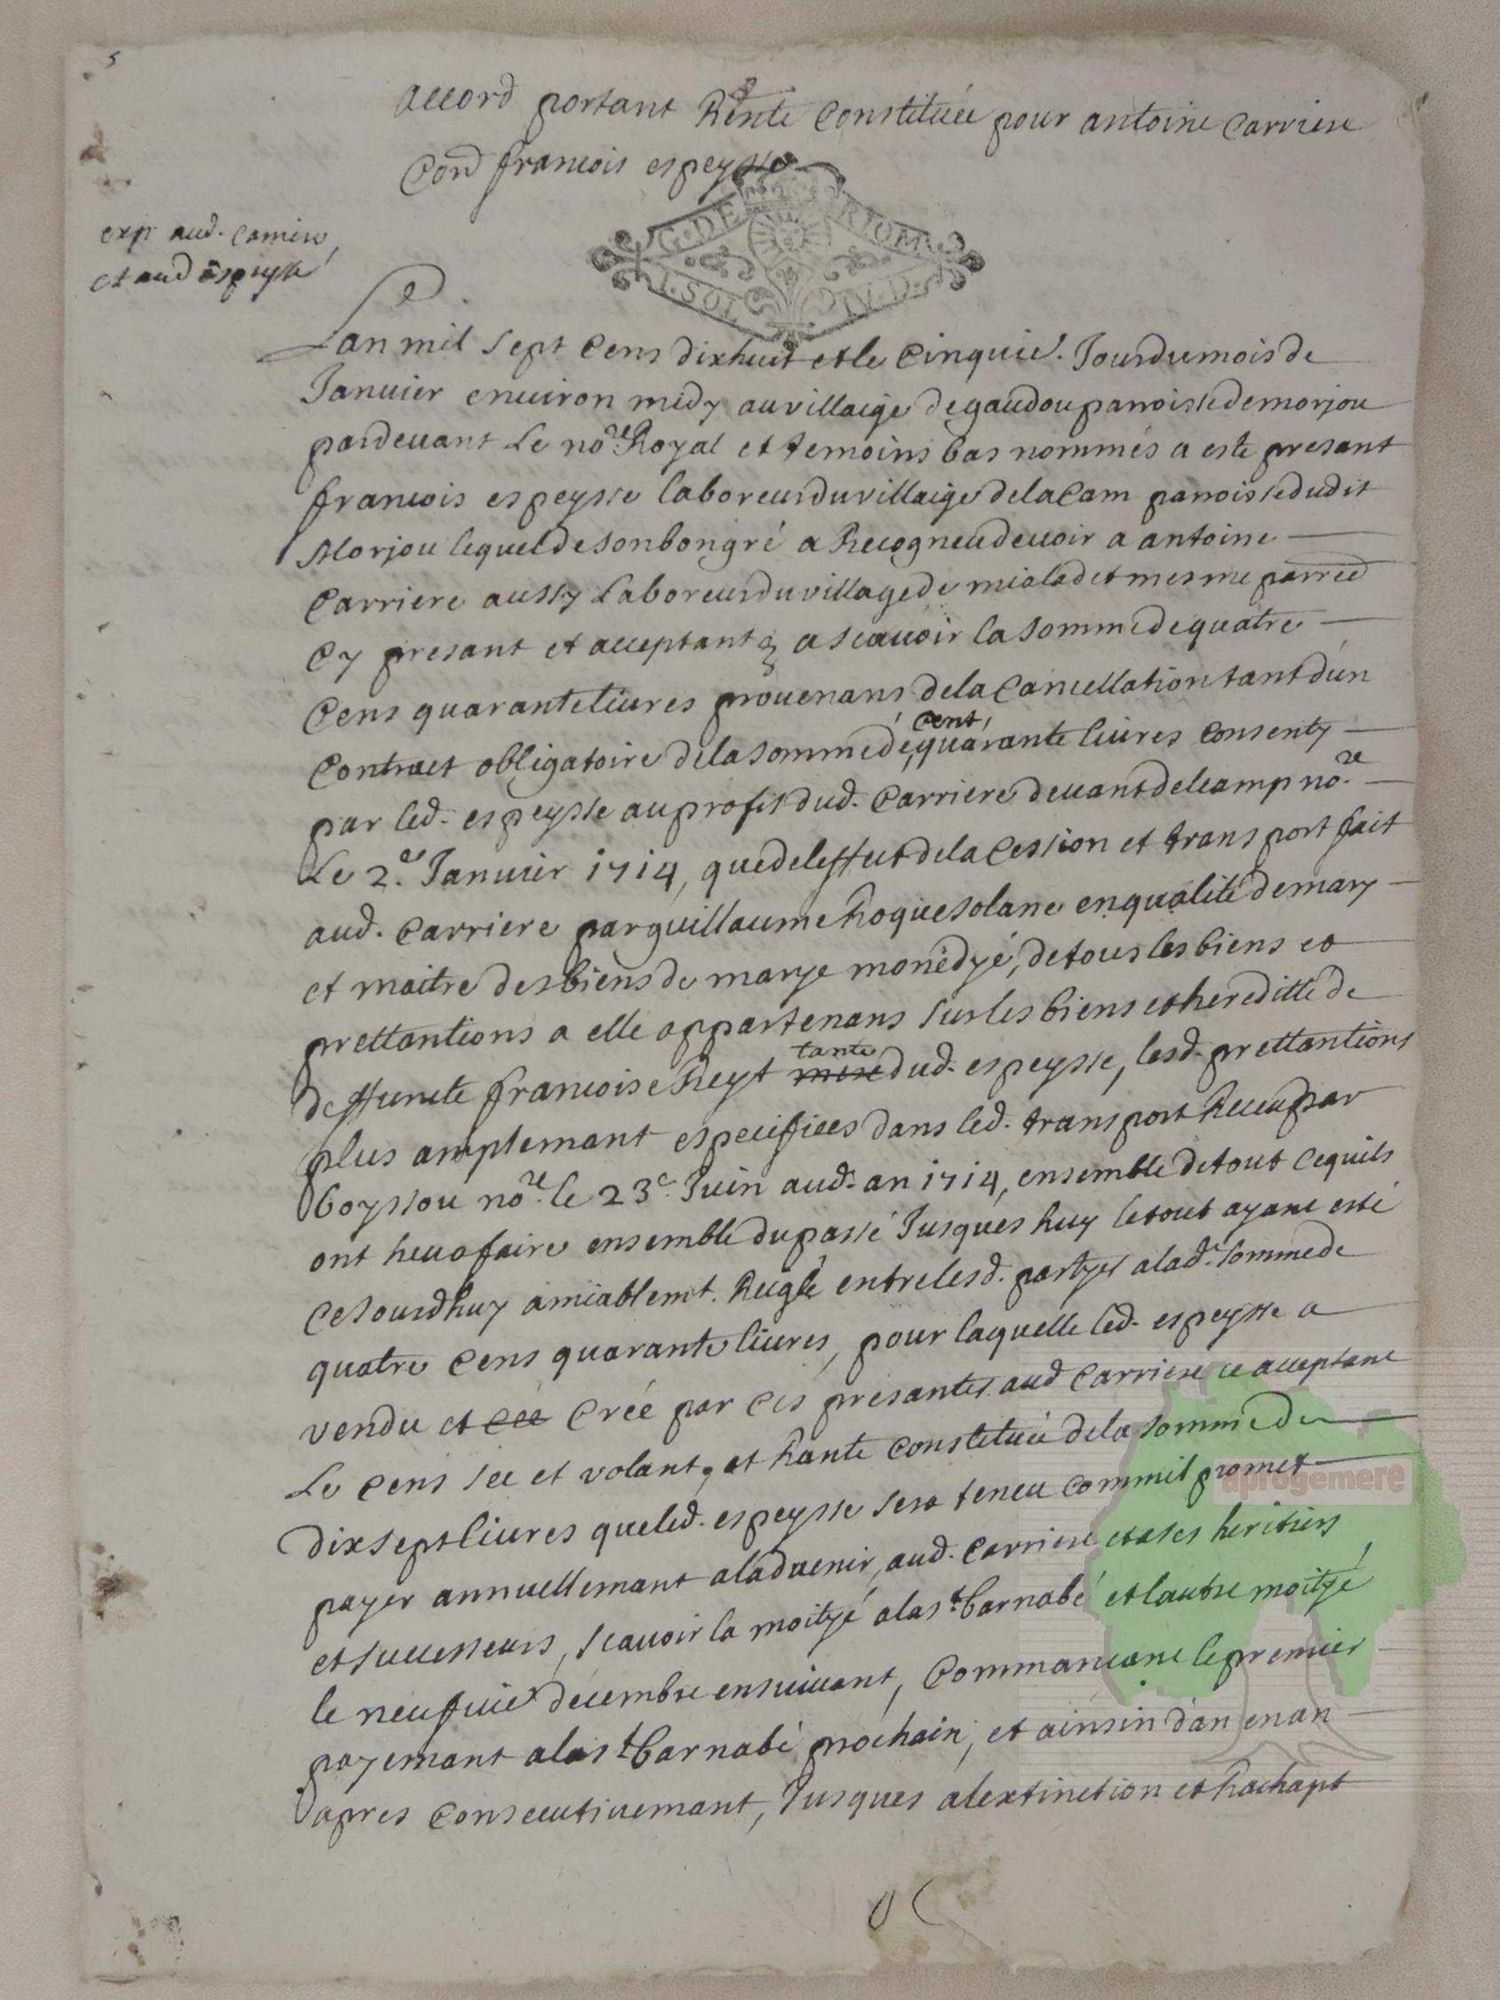 5
accord portant Rente constituée pour antoine carriere
con francois espeysse
G. DE RIOM
1. SOL IV. D.
exp aud. carriere
et aud espeysse
Lan mil sept cens dixhuit et le cinquie. Jour du mois de
Januier enuiron midy au villaige de gaudou parroisse de morjou
pardeuant Le nore. Royal et temoins bas nommés a este presant
francois espeysse laboreur du villaige de la cam parroisse dudit
Morjou lequel de son bon gré a Recogneu deuoir a antoine
Carriere aussy Laboreur du village de mialadet mesme parred
cy presant et acceptant a scauoir la somme de quatre
Cens quarante liures prouenans de la cancellation tant dún
contract obligatoire de la somme de cent quarante liures consenty
par led. espeysse au profit dud. carriere deuant delcamp nore.
Le 2e. Januier 1714, que de leffut de la cession et transport fait
aud. carriere par guillaume Roquesolane en qualité de mary
et maitre des biens de marye monédyé, de tous les biens et
prettantions a elle appartenans sur les biens et hereditte de
deffuncte francoise Reyt mere tante dud. espeysse, lesd. prettantions
plus amplemant especifiees dans led. transport Receu par
boyssou nore. le 23e. Juin aud. an 1714, ensemble de tout ce quils
ont heu a faire ensemble du passé Jusques huy le tout ayant esté
ce Jourdhuy amiablemt. Reglé entre lesd. partyes a lad. somme de
quatre cens quarante liures, pour laquelle led. espeysse a
vendu et céé créé par ces presantes aud carriere ce acceptant
Le cens sec et volant, et Rante constituée de la somme de
dix sept liures que led. espeysse sera teneu comm il promet
payer annuellemant a laduenir, aud. carriere et a ses heritiers
et successeurs, scauoir la moityé a la st. barnabé et lautre moityé
le neufuie decembre ensuiuant, commancant le premier
payemant a la st. barnabé prochain, et ainsin dán en an
apres consecutiuemant, Jusques a lextinction et Rachapt
aprogemere